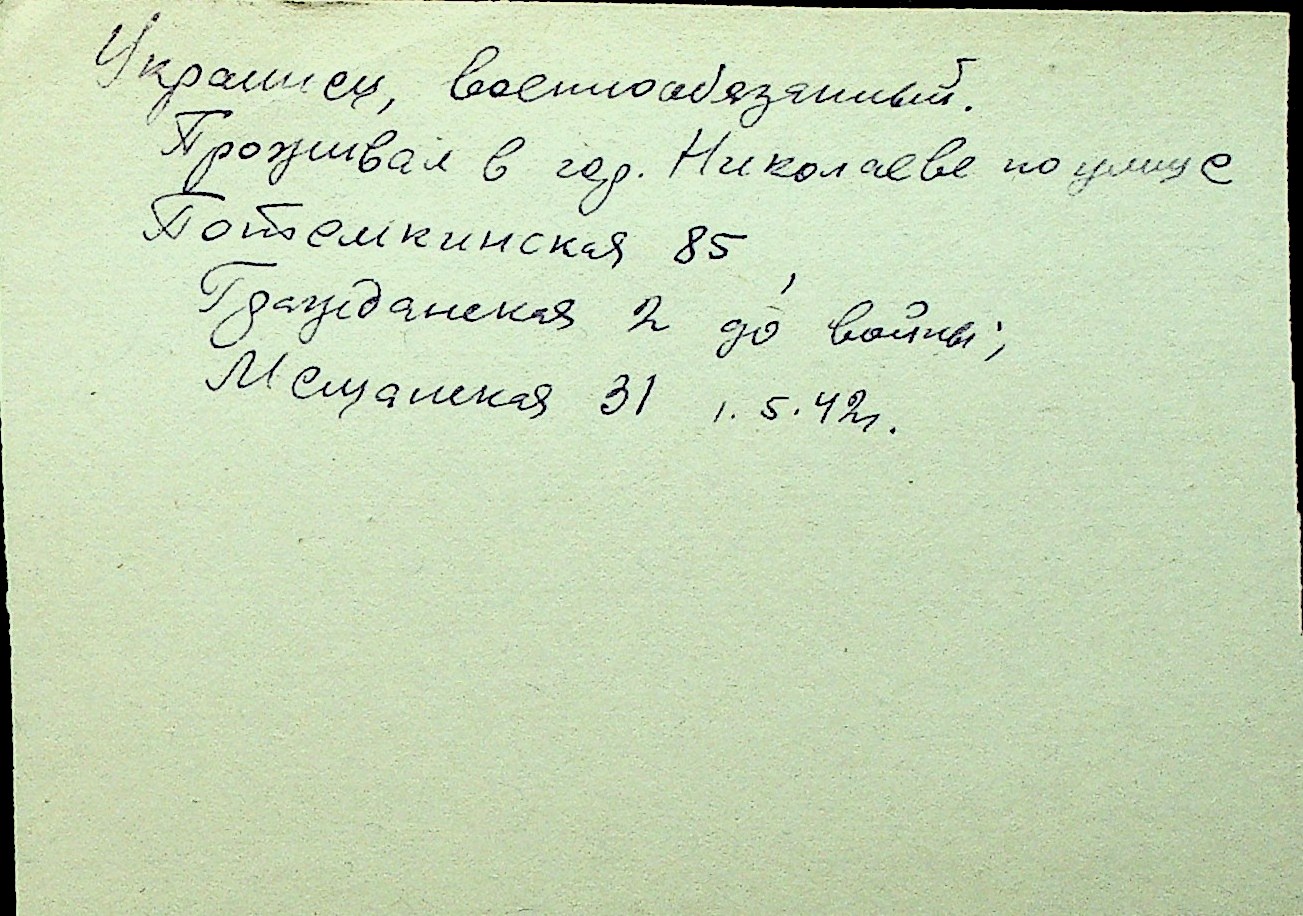 Украинец, военнообязанный.
Проживал в гор. Николаеве по улице
Потемкинская 85,
Гражданская 2 до войны;
Мещанская 31 1.5.42г.